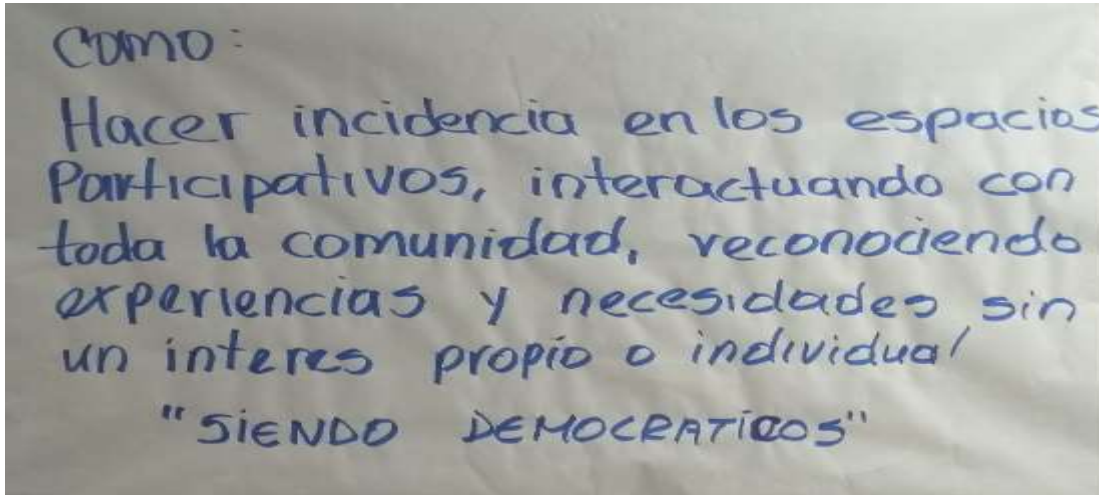 como:
Hacer incidencia en los espacios
Participativos, interactuando con
toda la comunidad, reconociendo
experiencias y necesidades sin
un interes propio o individual
"SiENDO DEMOCRATiCOS"